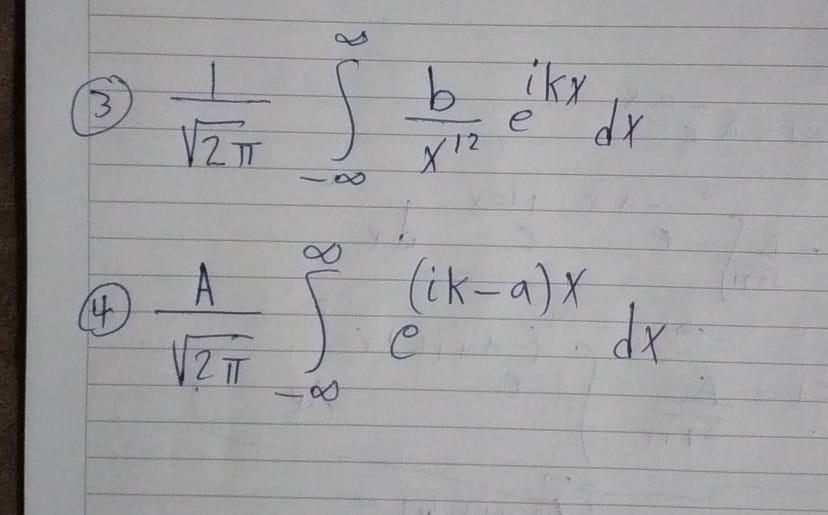 ③ \frac{1}{\sqrt{2π}} \int_{-∞}^{∞} \frac{b}{x^{12}} e^{ikx} dx
④ \frac{A}{\sqrt{2π}} \int_{-∞}^{∞} e^{(ik-a)x} dx